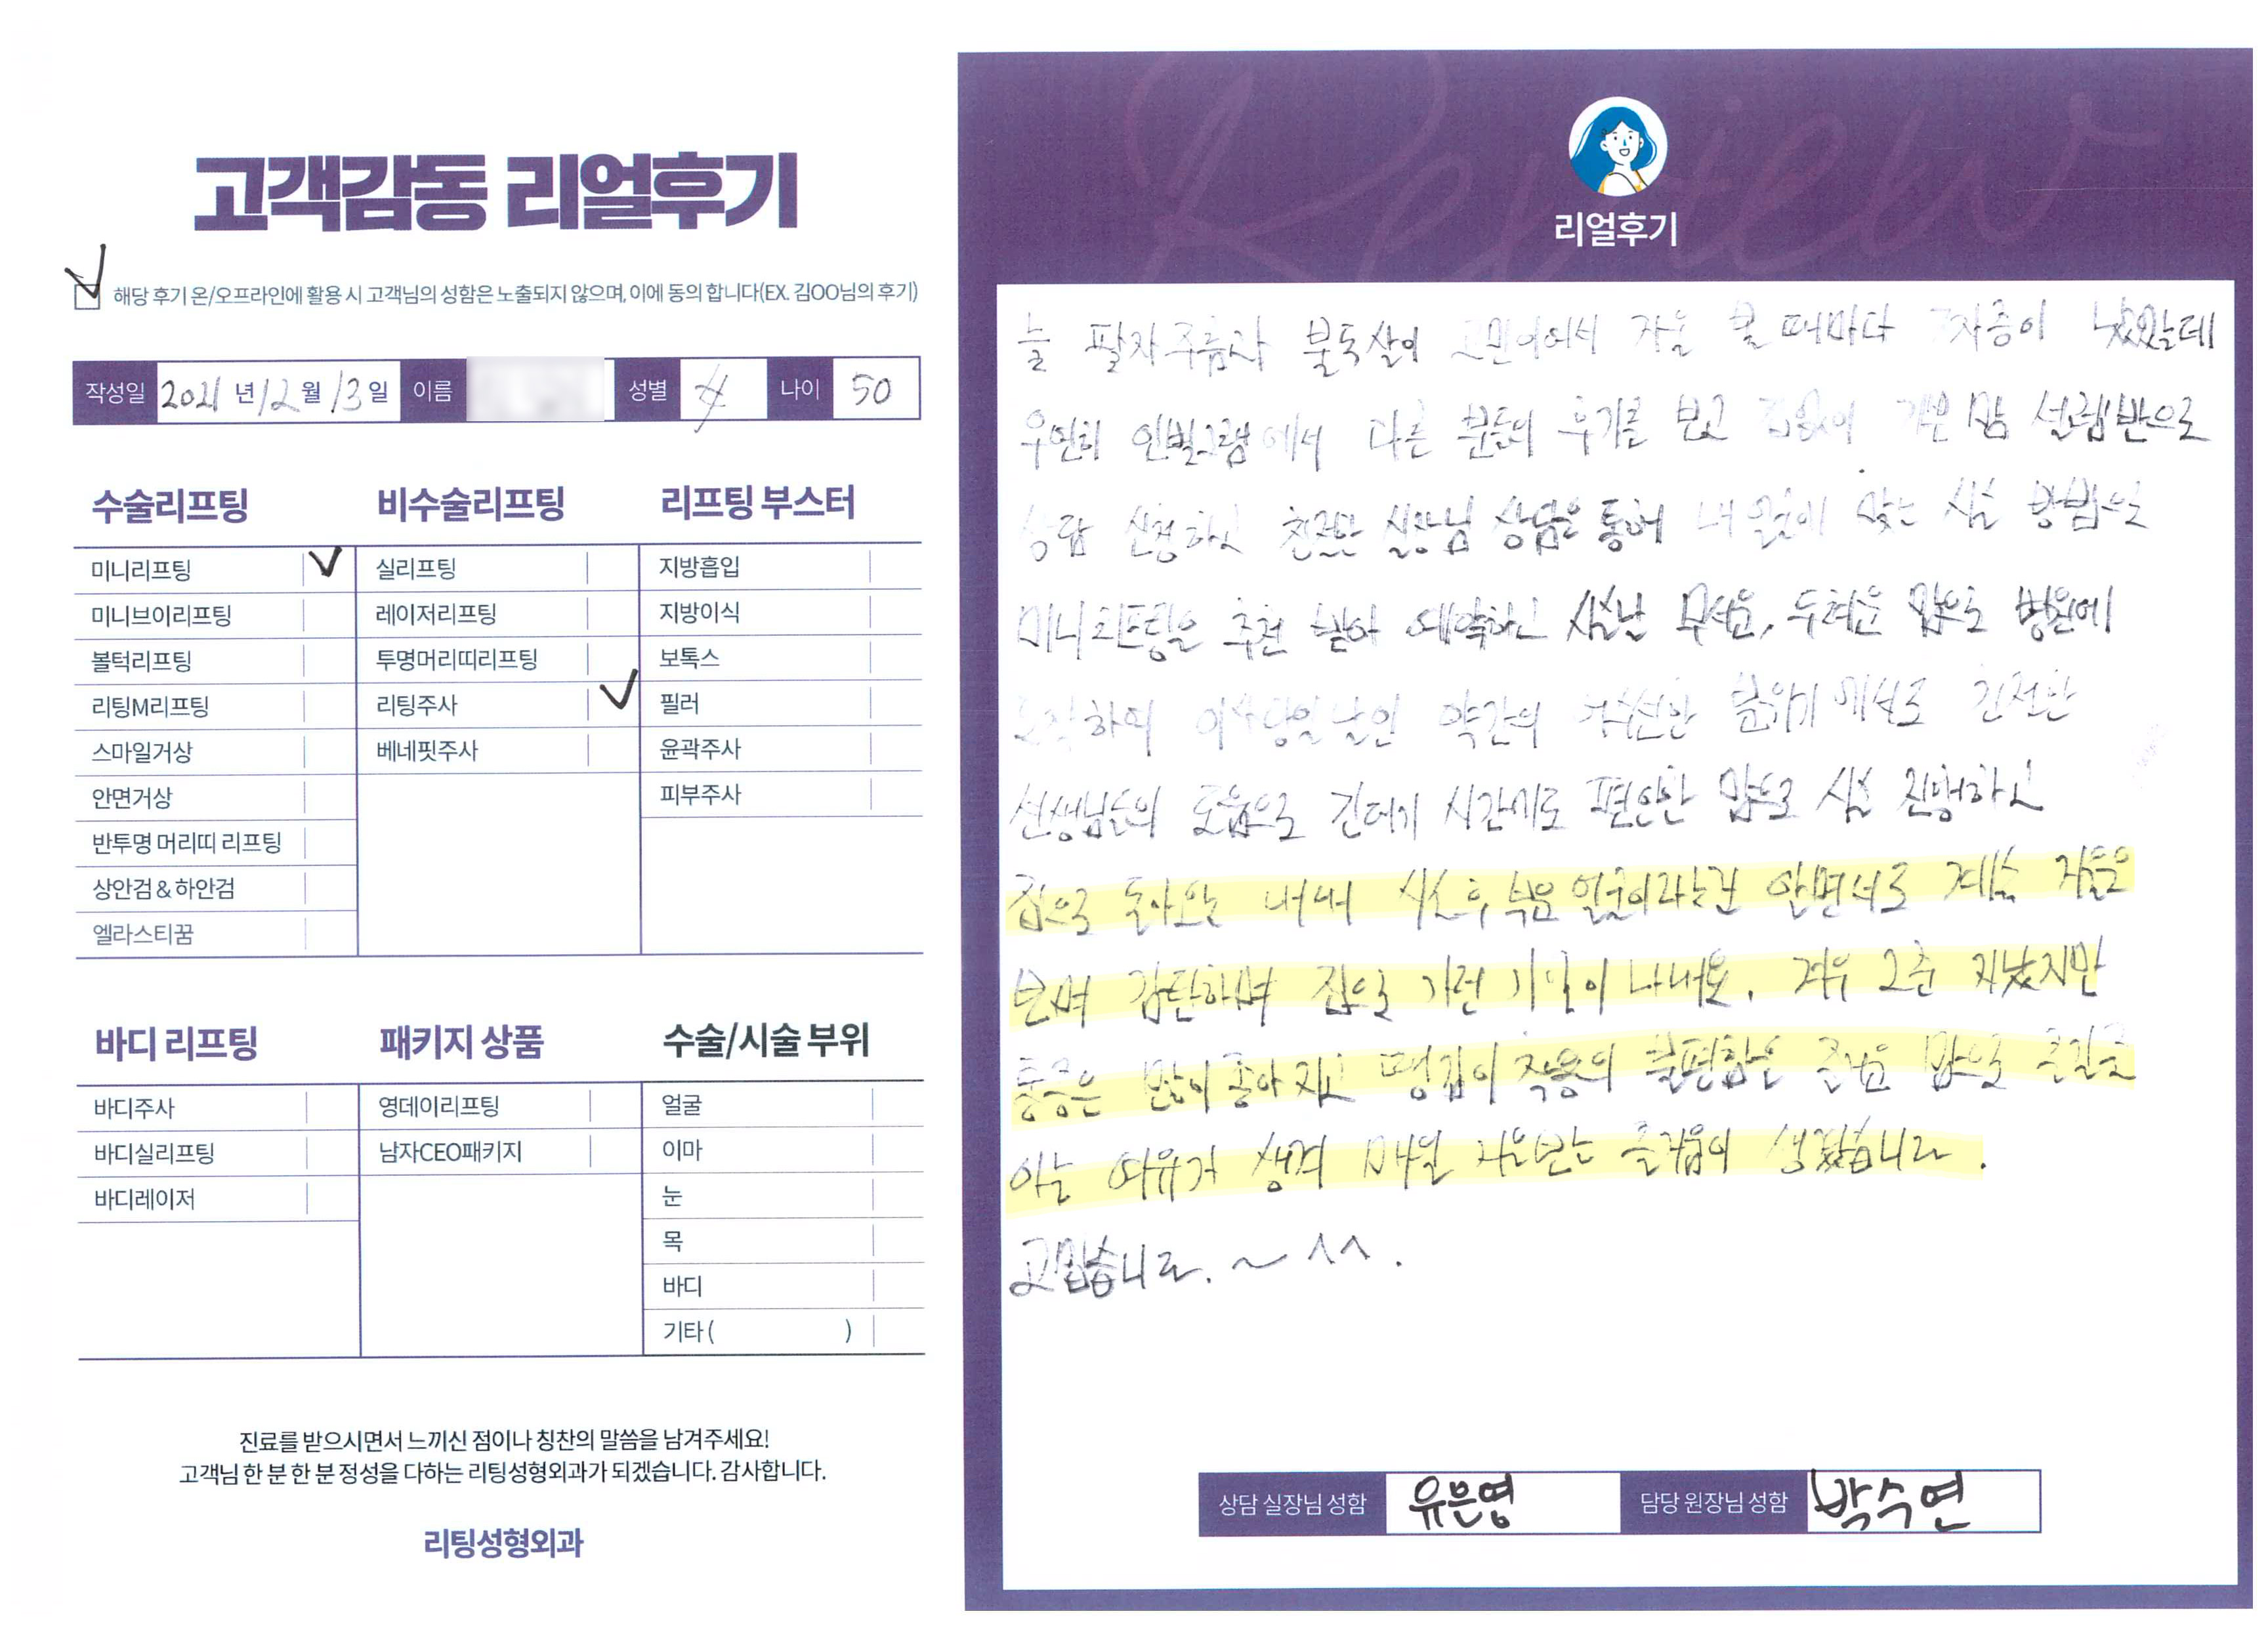 고객감동 리얼후기
해당 후기 온/오프라인에 활용 시 고객님의 성함은 노출되지 않으며, 이에 동의 합니다(EX. 김OO님의 후기)
작성일 2021 년 12 월 13 일 이름 성별 나이 50
수술리프팅
미니리프팅
미니브이리프팅
볼턱리프팅
리팅M리프팅
스마일거상
안면거상
반투명 머리띠 리프팅
상안검 & 하안검
엘라스티꿈
비수술리프팅
실리프팅
레이저리프팅
투명머리띠리프팅
리팅주사
베네핏주사
리프팅 부스터
지방흡입
지방이식
보톡스
필러
윤곽주사
피부주사
바디 리프팅
바디주사
바디실리프팅
바디레이저
패키지 상품
영데이리프팅
남자CEO패키지
수술/시술 부위
얼굴
이마
눈
목
바디
기타 ( )
진료를 받으시면서 느끼신 점이나 칭찬의 말씀을 남겨주세요!
고객님 한 분 한 분 정성을 다하는 리팅성형외과가 되겠습니다. 감사합니다.
리팅성형외과
Review
리얼후기
늘 팔자주름과 불독살이 고민이어서 거울 볼 때마다 짜증이 났었는데
우연히 에서 다른 분들의 후기를 보고 맘 설렘반으로
상담 신청하고 친절한 실장님 상담을 통해 내 얼굴에 맞는 시술 방법으로
미니리프팅을 추천 받아 예약하고 시술날 무서움, 두려운 맘으로 병원에
약간의 분위기 친절한
선생님들의 도움으로 시간에도 편안한 맘으로 시술 진행하고
집으로 돌아오는 내내 시술후 부은 얼굴이라는걸 알면서도 계속 거울을
보며 감탄하며 집으로 가던 기억이 나네요. 겨우 2주 지났지만
통증은 많이 좋아지고 땡김이 착용의 불편함은 즐거운 맘으로
아는 여유가 생겨 매일 거울보는 즐거움이 생겼습니다.
고맙습니다. ~ ^^.
상담 실장님 성함 유은영 담당 원장님 성함 박수연